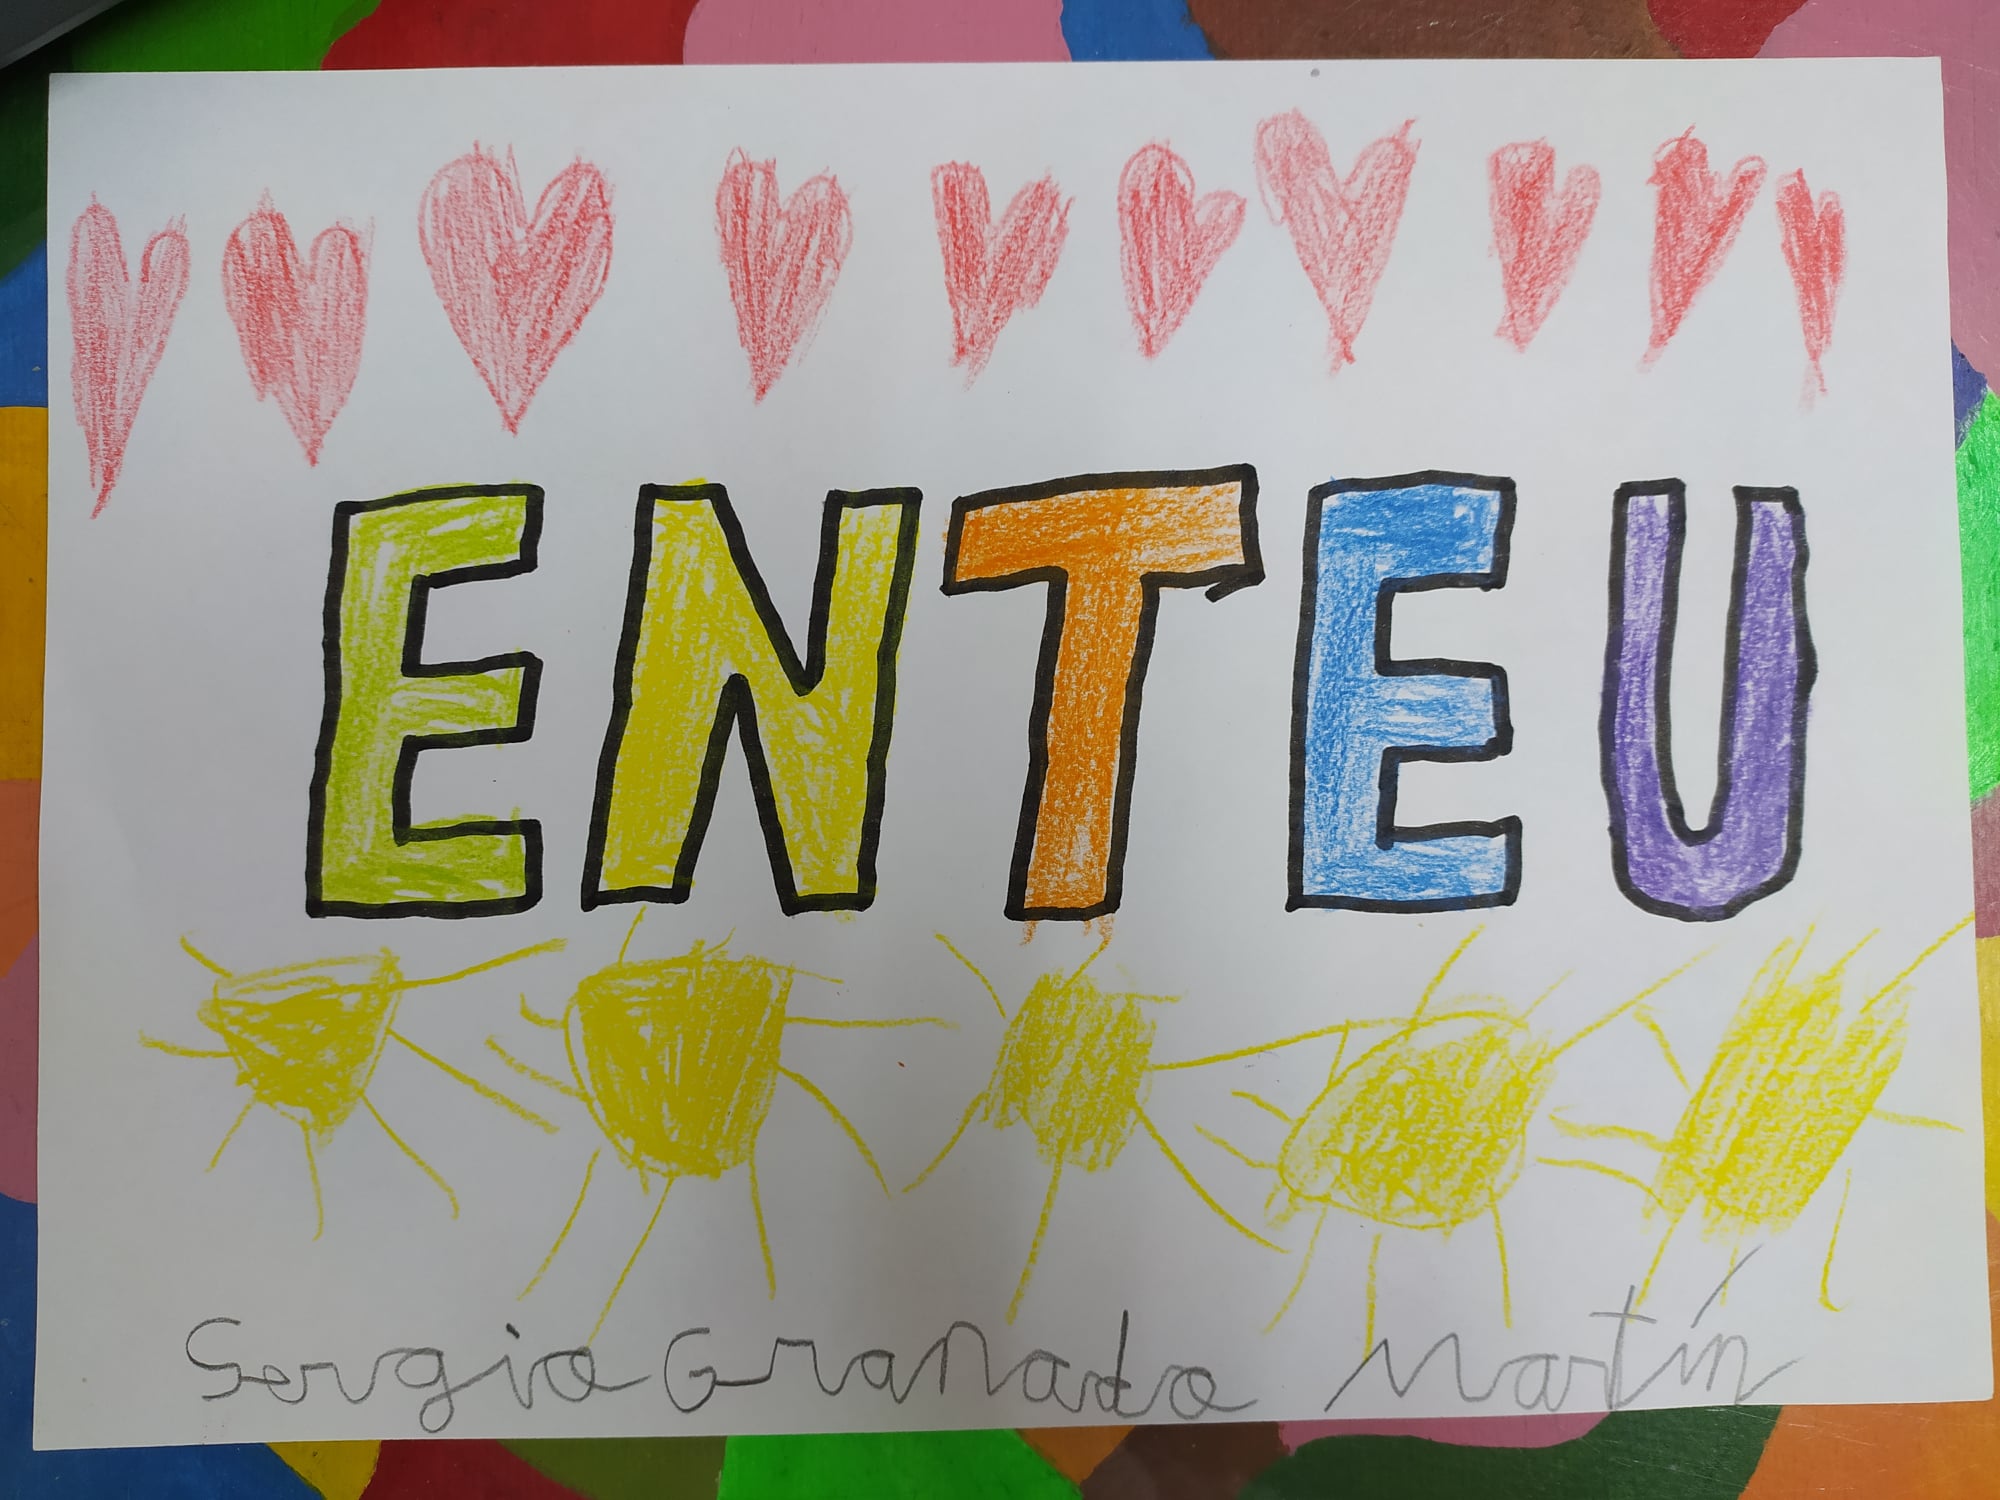 ENTEU
Sergio Granado Martín